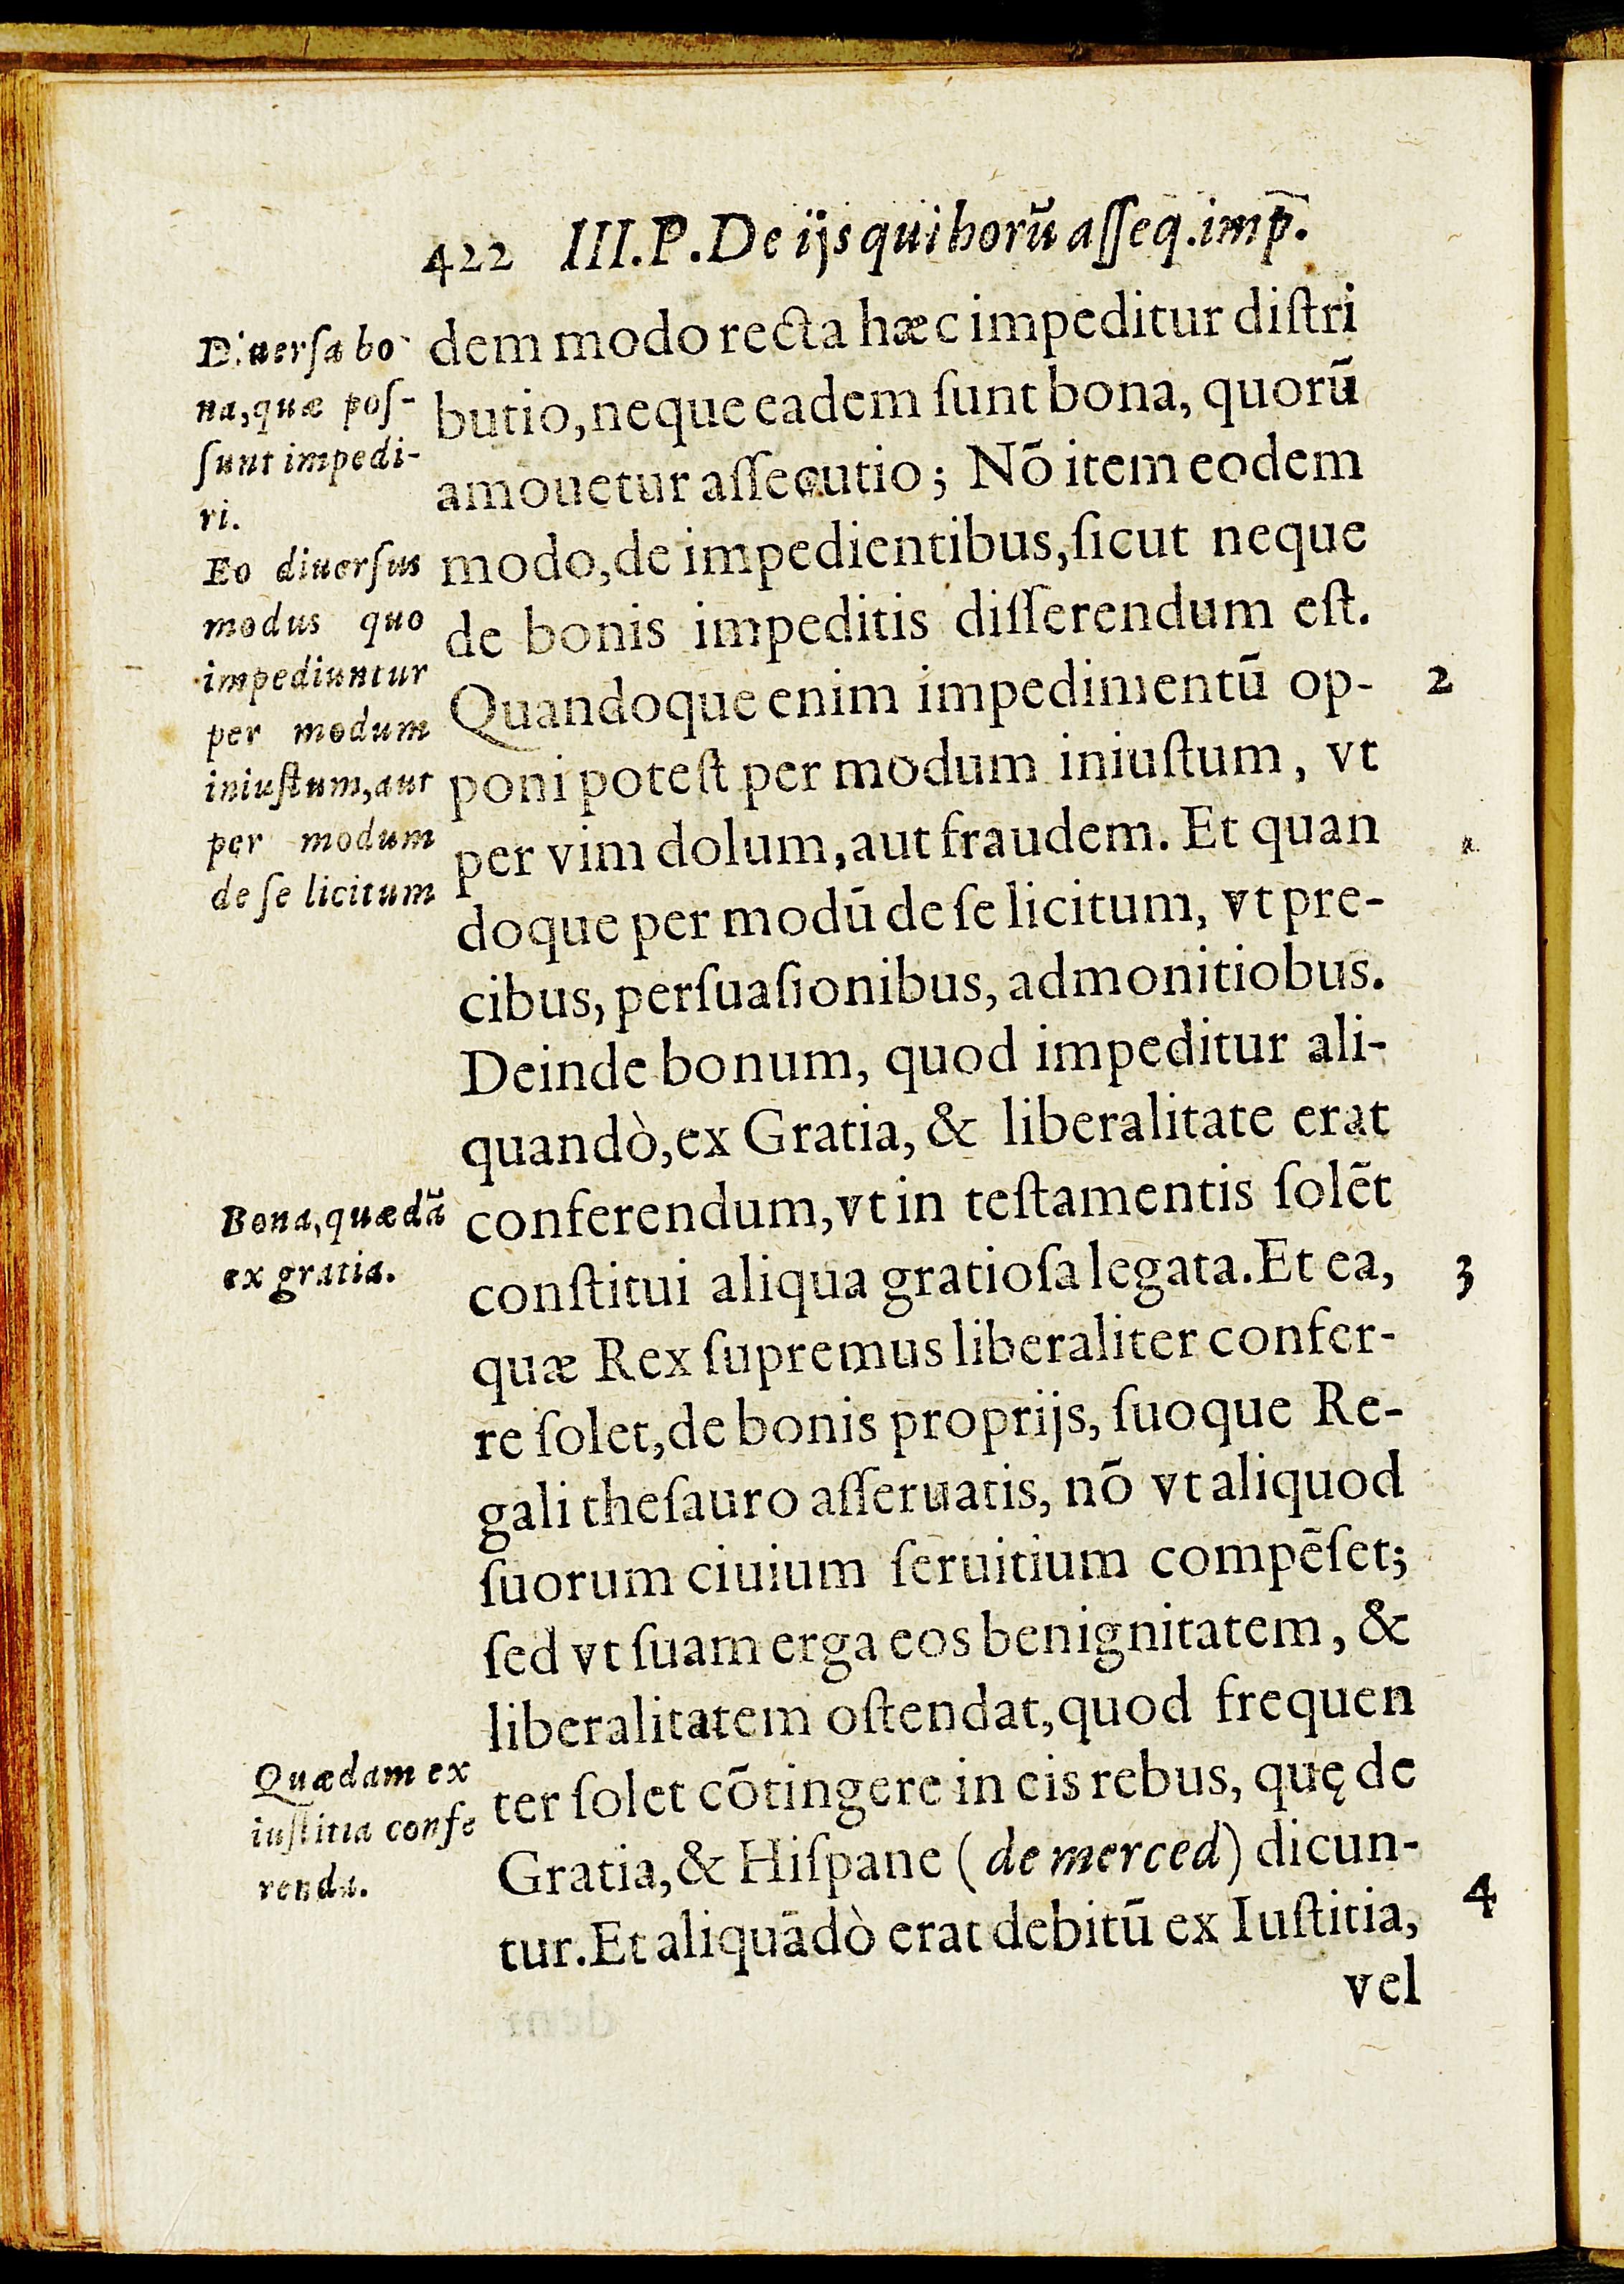 422 III.P.De ijs qui horū aſſeq.imp̄.
Diuerſa bo
na,quæ poſ-
ſunt impedi-
ri.
Eo diuerſus
modus quo
impediuntur
per modum
iniuſtum,aut
per modum
de ſe licitum
dem modo recta hæc impeditur diſtri
butio,neque eadem ſunt bona, quorū
amouetur aſſecutio; Nō item eodem
modo,de impedientibus,ſicut neque
de bonis impeditis diſſerendum eſt.
Quandoque enim impedimentū op- 2
poni poteſt per modum iniuſtum, vt
per vim dolum,aut fraudem. Et quan
doque per modū de ſe licitum, vt pre-
cibus, perſuaſionibus, admonitiobus.
Deinde bonum, quod impeditur ali-
quandò,ex Gratia, & liberalitate erat
Bona,quædã
ex gratia.
conferendum,vt in teſtamentis ſolēt
conſtitui aliqua gratioſa legata.Et ea, 3
quæ Rex ſupremus liberaliter confer-
re ſolet,de bonis proprijs, ſuoque Re-
gali theſauro aſſeruatis, nō vt aliquod
ſuorum ciuium ſeruitium compēſet;
ſed vt ſuam erga eos benignitatem, &
liberalitatem oſtendat,quod frequen
Quædam ex
iuſtitia confe
renda.
ter ſolet cōtingere in eis rebus, quę de
Gratia,& Hiſpane (de merced) dicun-
tur.Et aliquādò erat debitū ex Iuſtitia, 4
vel